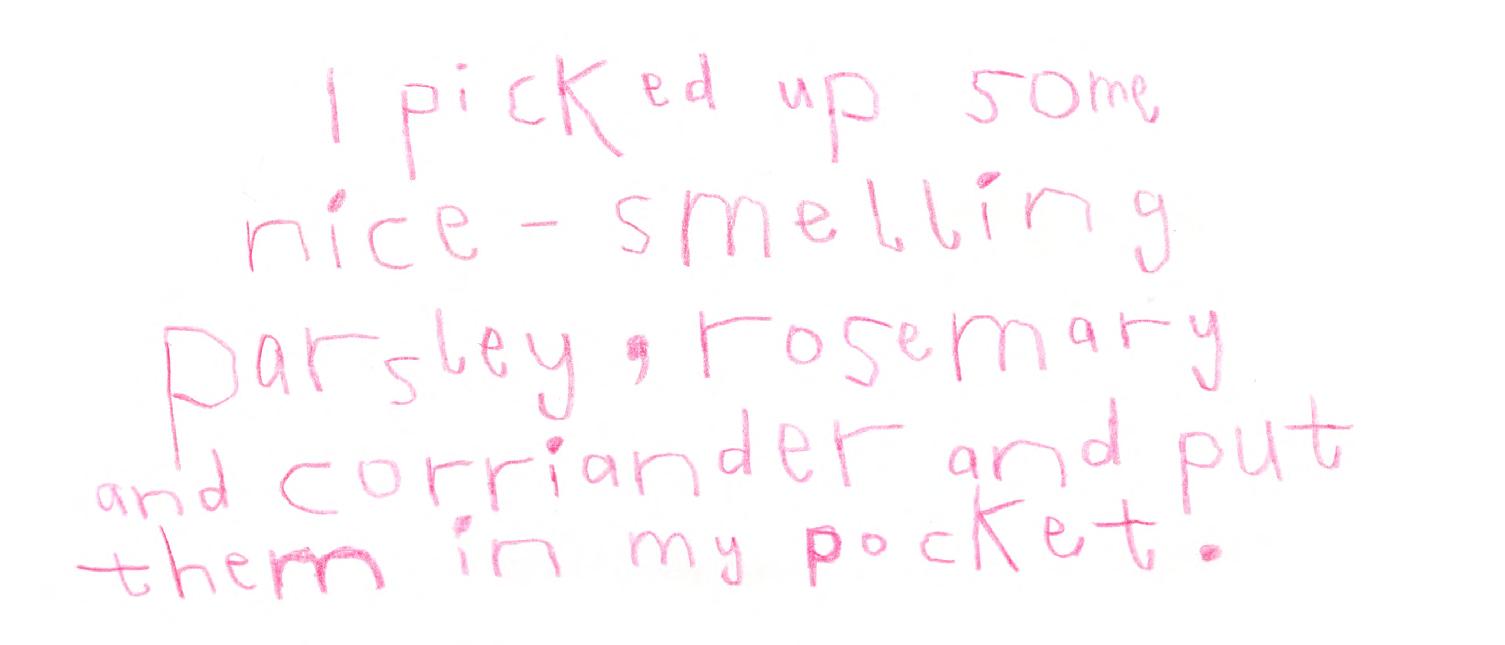 I picked up some
nice-smelling
parsley, rosemary
and corriander and put
them in my pocket.